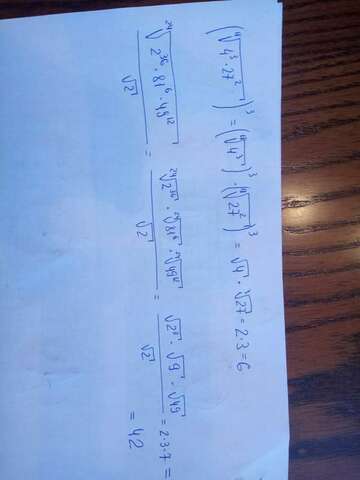 (¹⁸√(4³·27²))³ = (¹⁸√4³)³ · (¹⁸√27²)³ = √4 · ³√27 = 2·3 = 6
²⁴√(2³⁶·81⁶·49¹²) / √2 = ²⁴√2³⁶ · ²⁴√81⁶ · ²⁴√49¹² / √2 = √2³ · √9 · √49 / √2 = 2·3·7 =
= 42